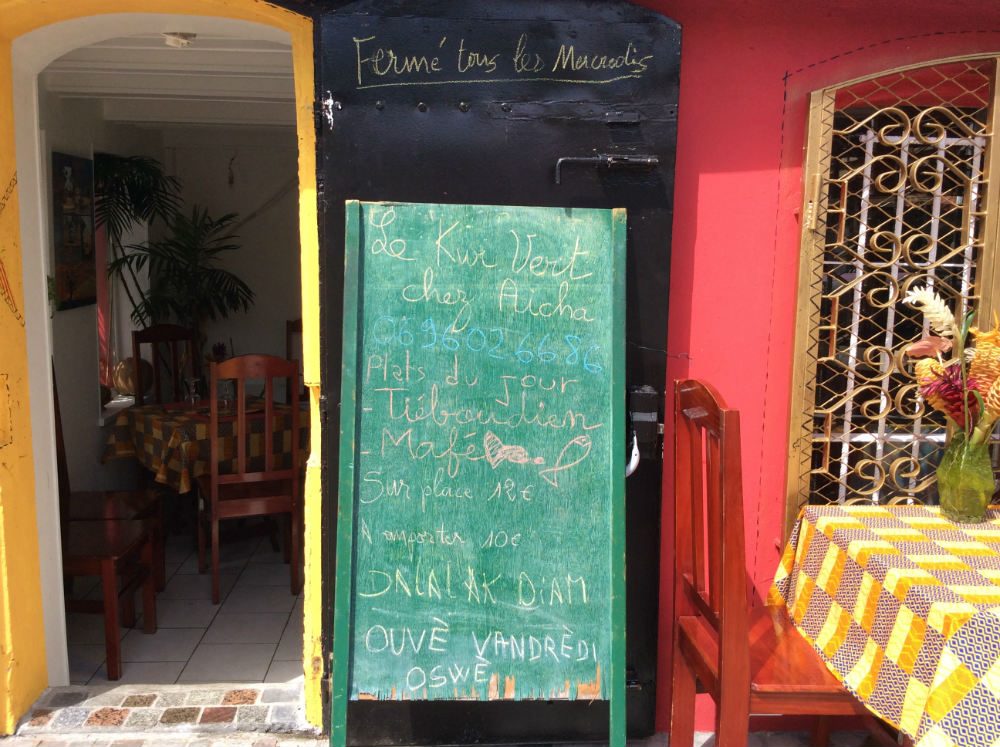 Fermé tous les Mercredis
Le Kiwi Vert
chez Aïcha
0696026686
Plats du jour
- Tiéboudien
- Mafé
Sur place 12€
A emporter 10€
DALAL AK DiAM
OUVÈ VANDRÈDI
OSWÈ